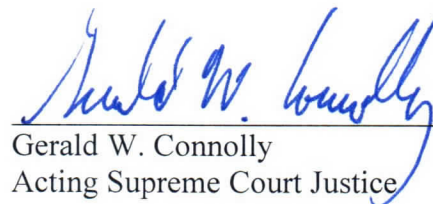 Gerald W. Connolly
Gerald W. Connolly
Acting Supreme Court Justice